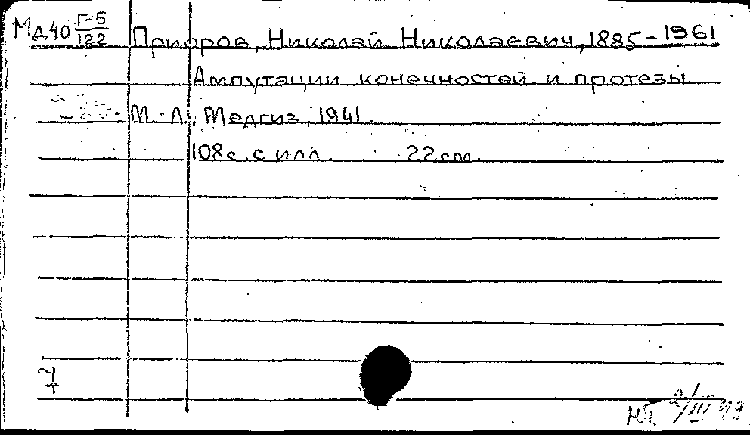 Мд40 Г-5/122 Приоров, Николай Николаевич, 1885-1961
Ампутации конечностей и протезы
М.-Л., Медгиз, 1941.
108с. с илл. 22см.
7